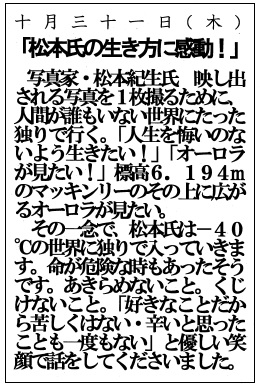 十月三十一日(木)
「松本氏の生き方に感動！」
写真家・松本紀生氏　映し出
される写真を１枚撮るために、
人間が誰もいない世界にたった
独りで行く。「人生を悔いのな
いよう生きたい！」「オーロラ
が見たい！」標高６．１９４ｍ
のマッキンリーのその上に広が
るオーロラが見たい。
その一念で、松本氏は－４０
℃の世界に独りで入っていきま
す。命が危険な時もあったそう
です。あきらめないこと。くじ
けないこと。「好きなことだか
ら苦しくはない・辛いと思った
ことも一度もない」と優しい笑
顔で話をしてくださいました。